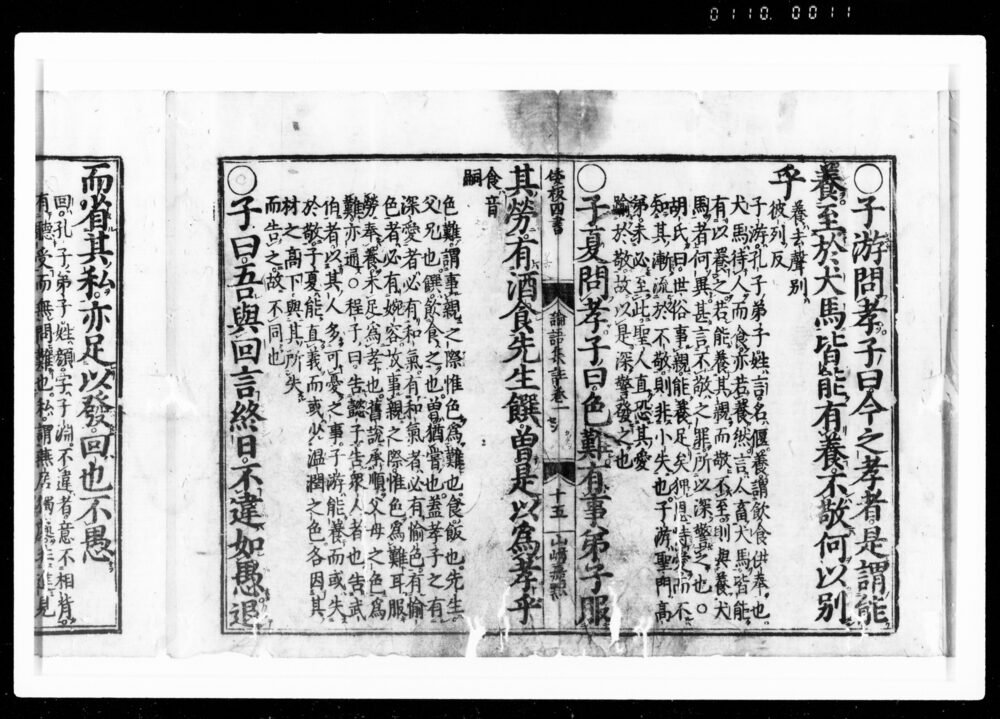 0110.0011
○子游問孝子曰今之孝者是謂能
養至於犬馬皆能有養不敬何以別
乎
養去聲別
彼列反
子游孔子弟子姓言名偃養謂飲食供奉也
犬馬待人而食亦若養然言人畜犬馬皆能
有以養之若能養其親而敬不至則與養犬
馬者何異甚言不敬之罪所以深警之也○
胡氏曰世俗事親能養足矣狎恩恃愛而不
知其漸流於不敬則非小失也子游聖門高
弟未必至此聖人直恐其愛
踰於敬故以是深警發之也
○子夏問孝子曰色難有事弟子服
倭板四書
論語集註卷一
十五
山崎嘉點
其勞有酒食先生饌曾是以為孝乎
食音
嗣
色難謂事親之際惟色為難也食飯也先生
父兄也饌飲食之也曾猶嘗也蓋孝子之有
深愛者必有和氣有和氣者必有愉色有愉
色者必有婉容故事親之際惟色為難耳服
勞奉養未足為孝也舊說承順父母之色為
難亦通○程子曰告懿子告衆人者也告武
伯者以其人多可憂之事子游能養而或失
於敬子夏能直義而或少溫潤之色各因其
材之高下與其所失
而告之故不同也
○子曰吾與回言終日不違如愚退
而省其私亦足以發回也不愚
回孔子弟子姓顏字子淵不違者意不相背
有聽受而無問難也私謂燕居獨處非進見